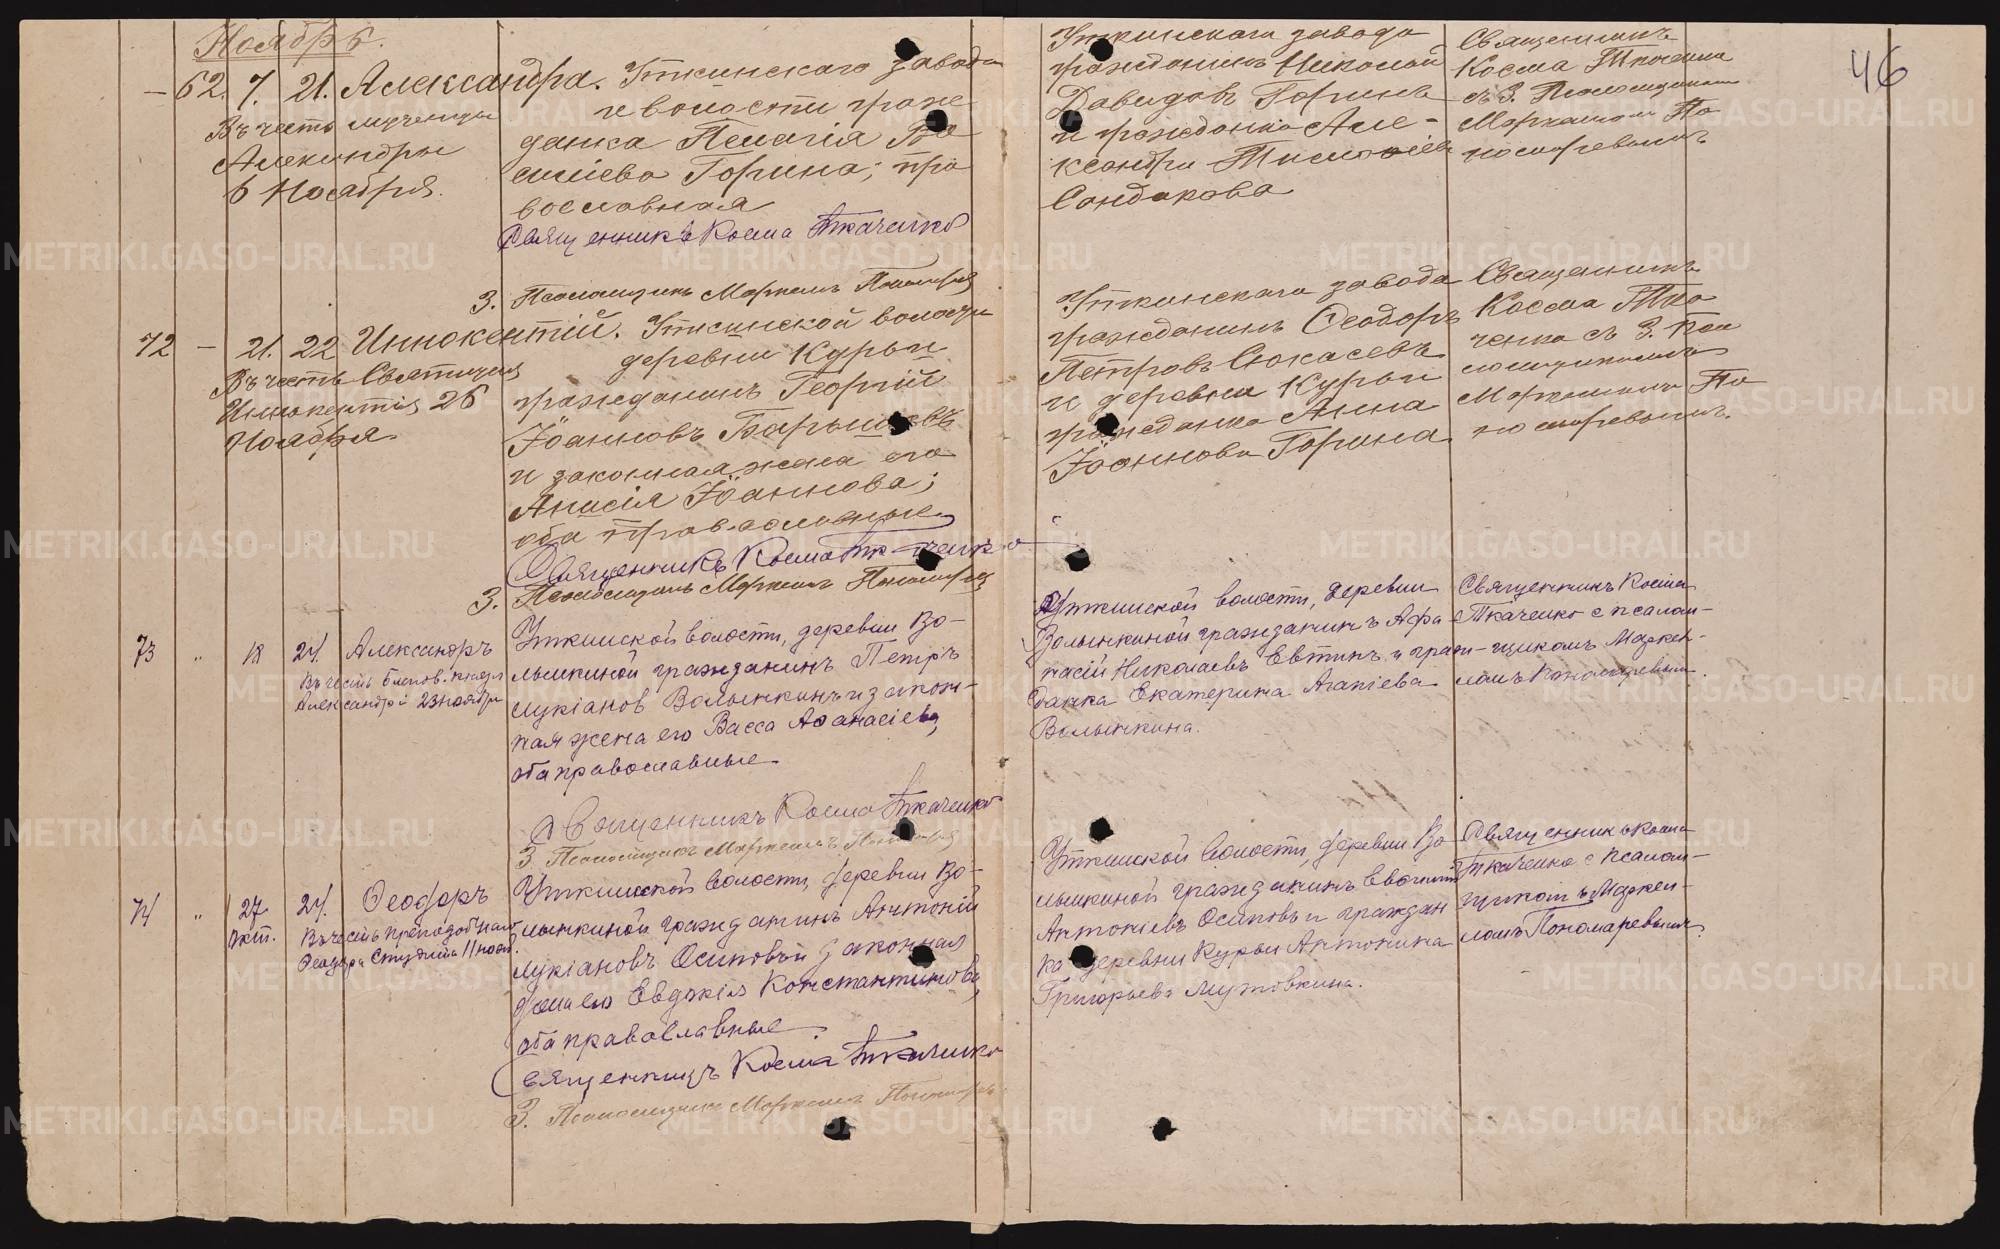 Ноябрь.
46
— 62. 7. 21. Александра.
Въ честь мученицы
Александры
6 Ноября.
Уткинскаго завода
и волости граж
данка Пелагія Ва
силіева Горина; пра
вославная
Священникъ Косма Ткаченко
З. Псаломщикъ Маркеллъ
Уткинскаго завода
гражданинъ Николай
Давидовъ Горинъ
и гражданка Але-
ксандра
Сандакова
Священникъ
Косма Ткаченко
съ З. Псаломщикомъ
Маркелломъ По
номаревымъ
72 — 21. 22 Иннокентій.
Въ честь Святителя
Иннокентія 26
Ноября
Уткинской волости
деревни Курьи
гражданинъ Георгій
Іоанновъ
и законная жена его
Анисія Іоаннова;
оба православные
Священникъ Косма Ткаченко
З. Псаломщикъ Маркеллъ
Уткинскаго завода
гражданинъ Ѳеодоръ
Петровъ
и деревни Курьи
гражданка Анна
Іоаннова Горина
Священникъ
Косма Тка
ченко съ З. Пса
ломщикомъ
Маркелломъ По
номаревымъ.
73 " 18 24. Александръ
Въ честь благов. князя
Александра 23 ноября
Уткинской волости, деревни Во-
лынкиной гражданинъ Петръ
Лукіановъ Волынкинъ и закон-
ная жена его Васса Аѳанасіева,
оба православные
Священникъ Косма Ткаченко
З. Псаломщикъ Маркеллъ
Уткинской волости, деревни
Волынкиной гражданинъ Афа
насій Николаевъ Евтинъ и граж-
данка Екатерина Агапіева
Волынкина.
Священникъ Косма
Ткаченко с псалом-
щикомъ Маркел-
ломъ Пономаревым.
74 " 27 окт. 24. Ѳеодоръ
Въ честь преподобнаго
Ѳеодора Студита 11 нояб.
Уткинской волости, деревни Во-
лынкиной гражданинъ Антоній
Лукіановъ Осиповъ и законная
жена его Евдокія Константинова,
оба православные
Священникъ Косма Ткаченко
З. Псаломщикъ Маркеллъ
Уткинской волости, деревни Во
лынкиной гражданинъ
Антоніевъ Осиповъ и граждан
ка деревни Курьи Антонина
Григорьева Мутовкина.
Священникъ Косма
Ткаченко с псалом-
щикомъ Маркел-
ломъ Пономаревымъ.
METRIKI.GASO-URAL.RU